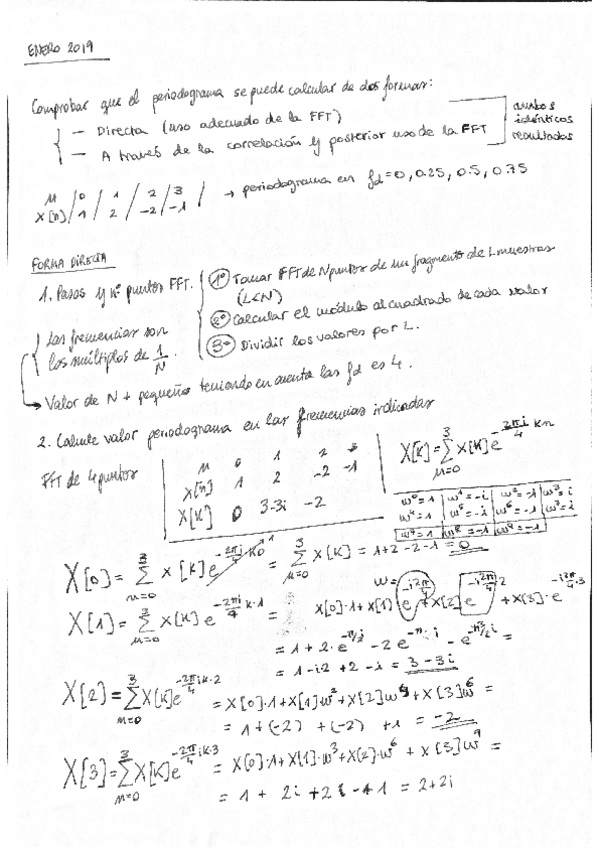 ENERO 2019
Comprobar que el periodograma se puede calcular de dos formas:
— Directa (uso adecuado de la FFT)
— A través de la correlación y posterior uso de la FFT
ambos idénticos resultados
n / 0 / 1 / 2 / 3 /
X[n] / 1 / 2 / -2 / -1 → periodograma en fd = 0, 0.25, 0.5, 0.75
FORMA DIRECTA
1. Pasos y nº puntos FFT.
1º Tomar FFT de N puntos de un fragmento de L muestras
(L<N)
2º Calcular el módulo al cuadrado de cada valor
3º Dividir los valores por L.
Las frecuencias son
los múltiplos de 1/N.
Valor de N + pequeño teniendo en cuenta las fd es 4.
2. Calcule valor periodograma en las frecuencias indicadas
FFT de 4 puntos
n 0 1 2 3
X[n] 1 2 -2 -1
X[k] 0 3-3i -2
X[k] = Σ_{n=0}^{3} X[k] e^{-2πi/4 kn}
w⁰=1 | w¹=-i | w²=-1 | w³=i
w⁴=1 | w⁵=-i | w⁶=-1 | w⁷=i
X[0] = Σ_{n=0}^{3} x[k] e^{-2πi/4 k0} = Σ_{n=0}^{3} x[k] = 1+2-2-1 = 0
X[1] = Σ_{n=0}^{3} x[k] e^{-2πi/4 k·1} = x[0]·1+x[1] e^{-i2π/4} + x[2] e^{-i2π/4 2} + x[3]·e^{-i2π/4·3}
w=
= 1 + 2·e^{-π/2 i} - 2e^{-π·i} - e^{-π3/2 i} =
= 1 - i2 + 2 - i = 3-3i
X[2] = Σ_{n=0}^{3} X[k] e^{-2πi/4 k·2} = X[0]·1+X[1]w²+X[2]w⁴+X[3]w⁶ =
= 1+(-2) + (-2) + 1 = -2
X[3] = Σ_{n=0}^{3} X[k] e^{-2πi/4 k·3} = X[0]·1+X[1]·w³+X[2]·w⁶ + X[3]w⁹ =
= 1 + 2i + 2 = 2+2i